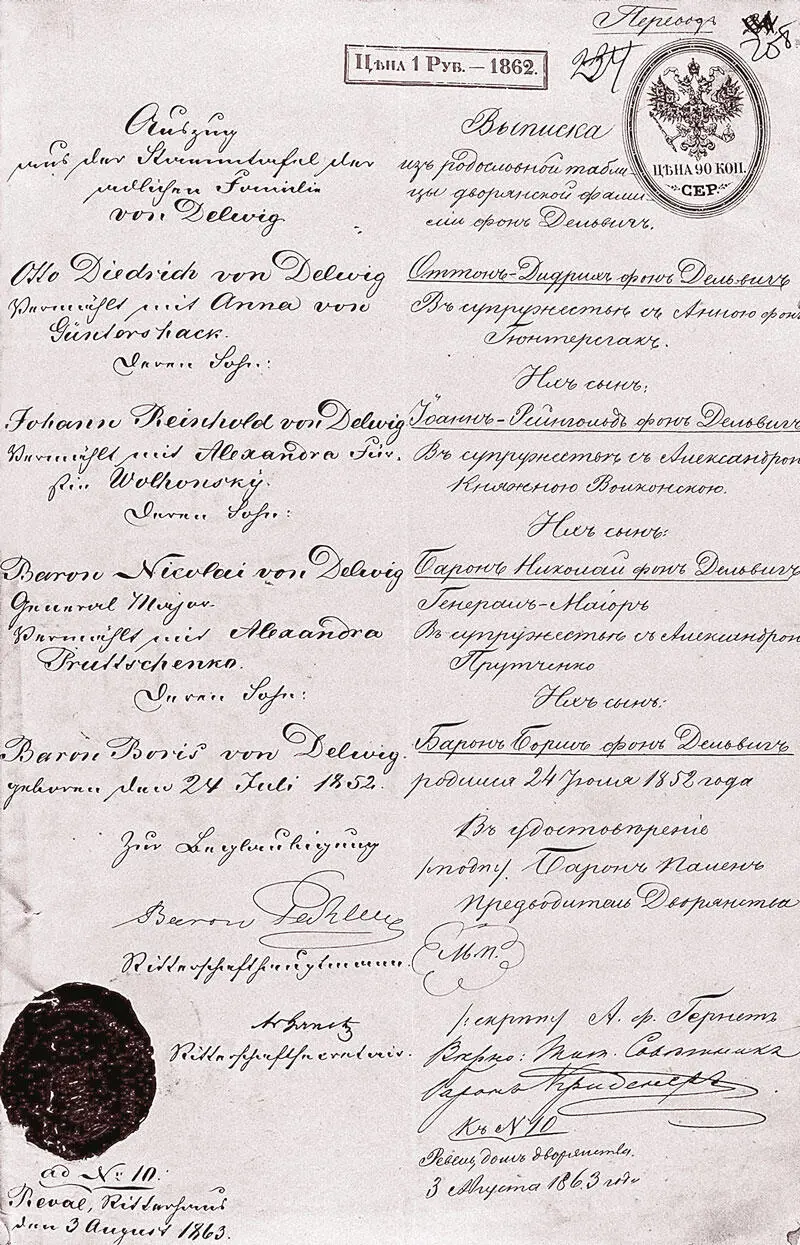 Переводъ
208
234
Цѣна 1 Руб. — 1862.
ЦѢНА 90 КОП.
СЕР.
Auszug
aus der Stammtafel der
adlichen Familie
von Delwig
Otto Diedrich von Delwig
Vermählt mit Anna von
Güntershack.
Deren Sohn:
Johann Reinhold von Delwig
Vermählt mit Alexandra Für-
stin Wolhonsky.
Deren Sohn:
Baron Nicolai von Delwig
General Major.
Vermählt mit Alexandra
Pruttschenko.
Deren Sohn:
Baron Boris von Delwig.
geboren den 24 Juli 1852.
Zur Beglaubigung
Baron
Ritterschafthauptmann.
Ritterschaftsecretair.
ad No 10.
Reval, Ritterhaus
den 3 August 1863.
Выписка
изъ родословной табли-
цы дворянской фами-
лiи фонъ Дельвигъ.
Оттонъ-Дидрихъ фонъ Дельвигъ
Въ супружествѣ съ Анною фонъ
Гюнтерсгакъ.
Ихъ сынъ:
Iоаннъ-Рейнгольдъ фонъ Дельвигъ
Въ супружествѣ съ Александрою
Княжною Волконскою.
Ихъ сынъ:
Баронъ Николай фонъ Дельвигъ
Генералъ-Маiоръ
Въ супружествѣ съ Александрою
Прутченко
Ихъ сынъ:
Баронъ Борисъ фонъ Дельвигъ
родился 24 Iюля 1852 года
Въ удостовѣренiе
/подп/. Баронъ Паленъ
Предводитель Дворянства
М.п.
/:скрѣп:/ А. ф. Гернетъ
Вѣрно: Тит. Совѣтникъ
Баронъ Криденеръ
Къ N 10
Ревель, домъ дворянства.
3 Августа 1863 года